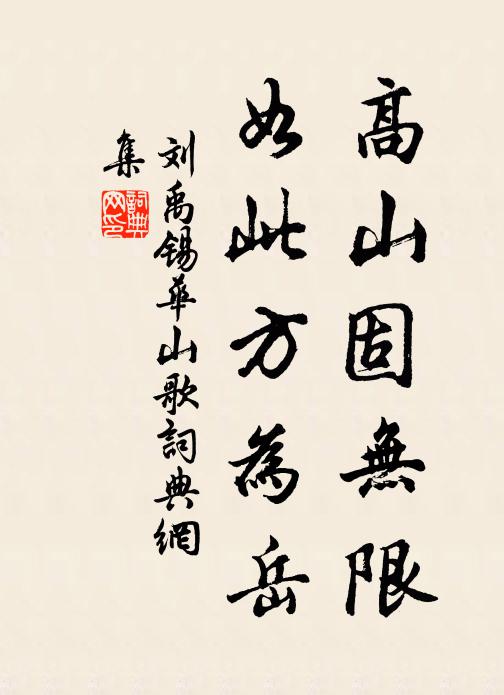 高山固無限
如此方為岳
刘禹锡華山歌詞典網
集
詞典网印